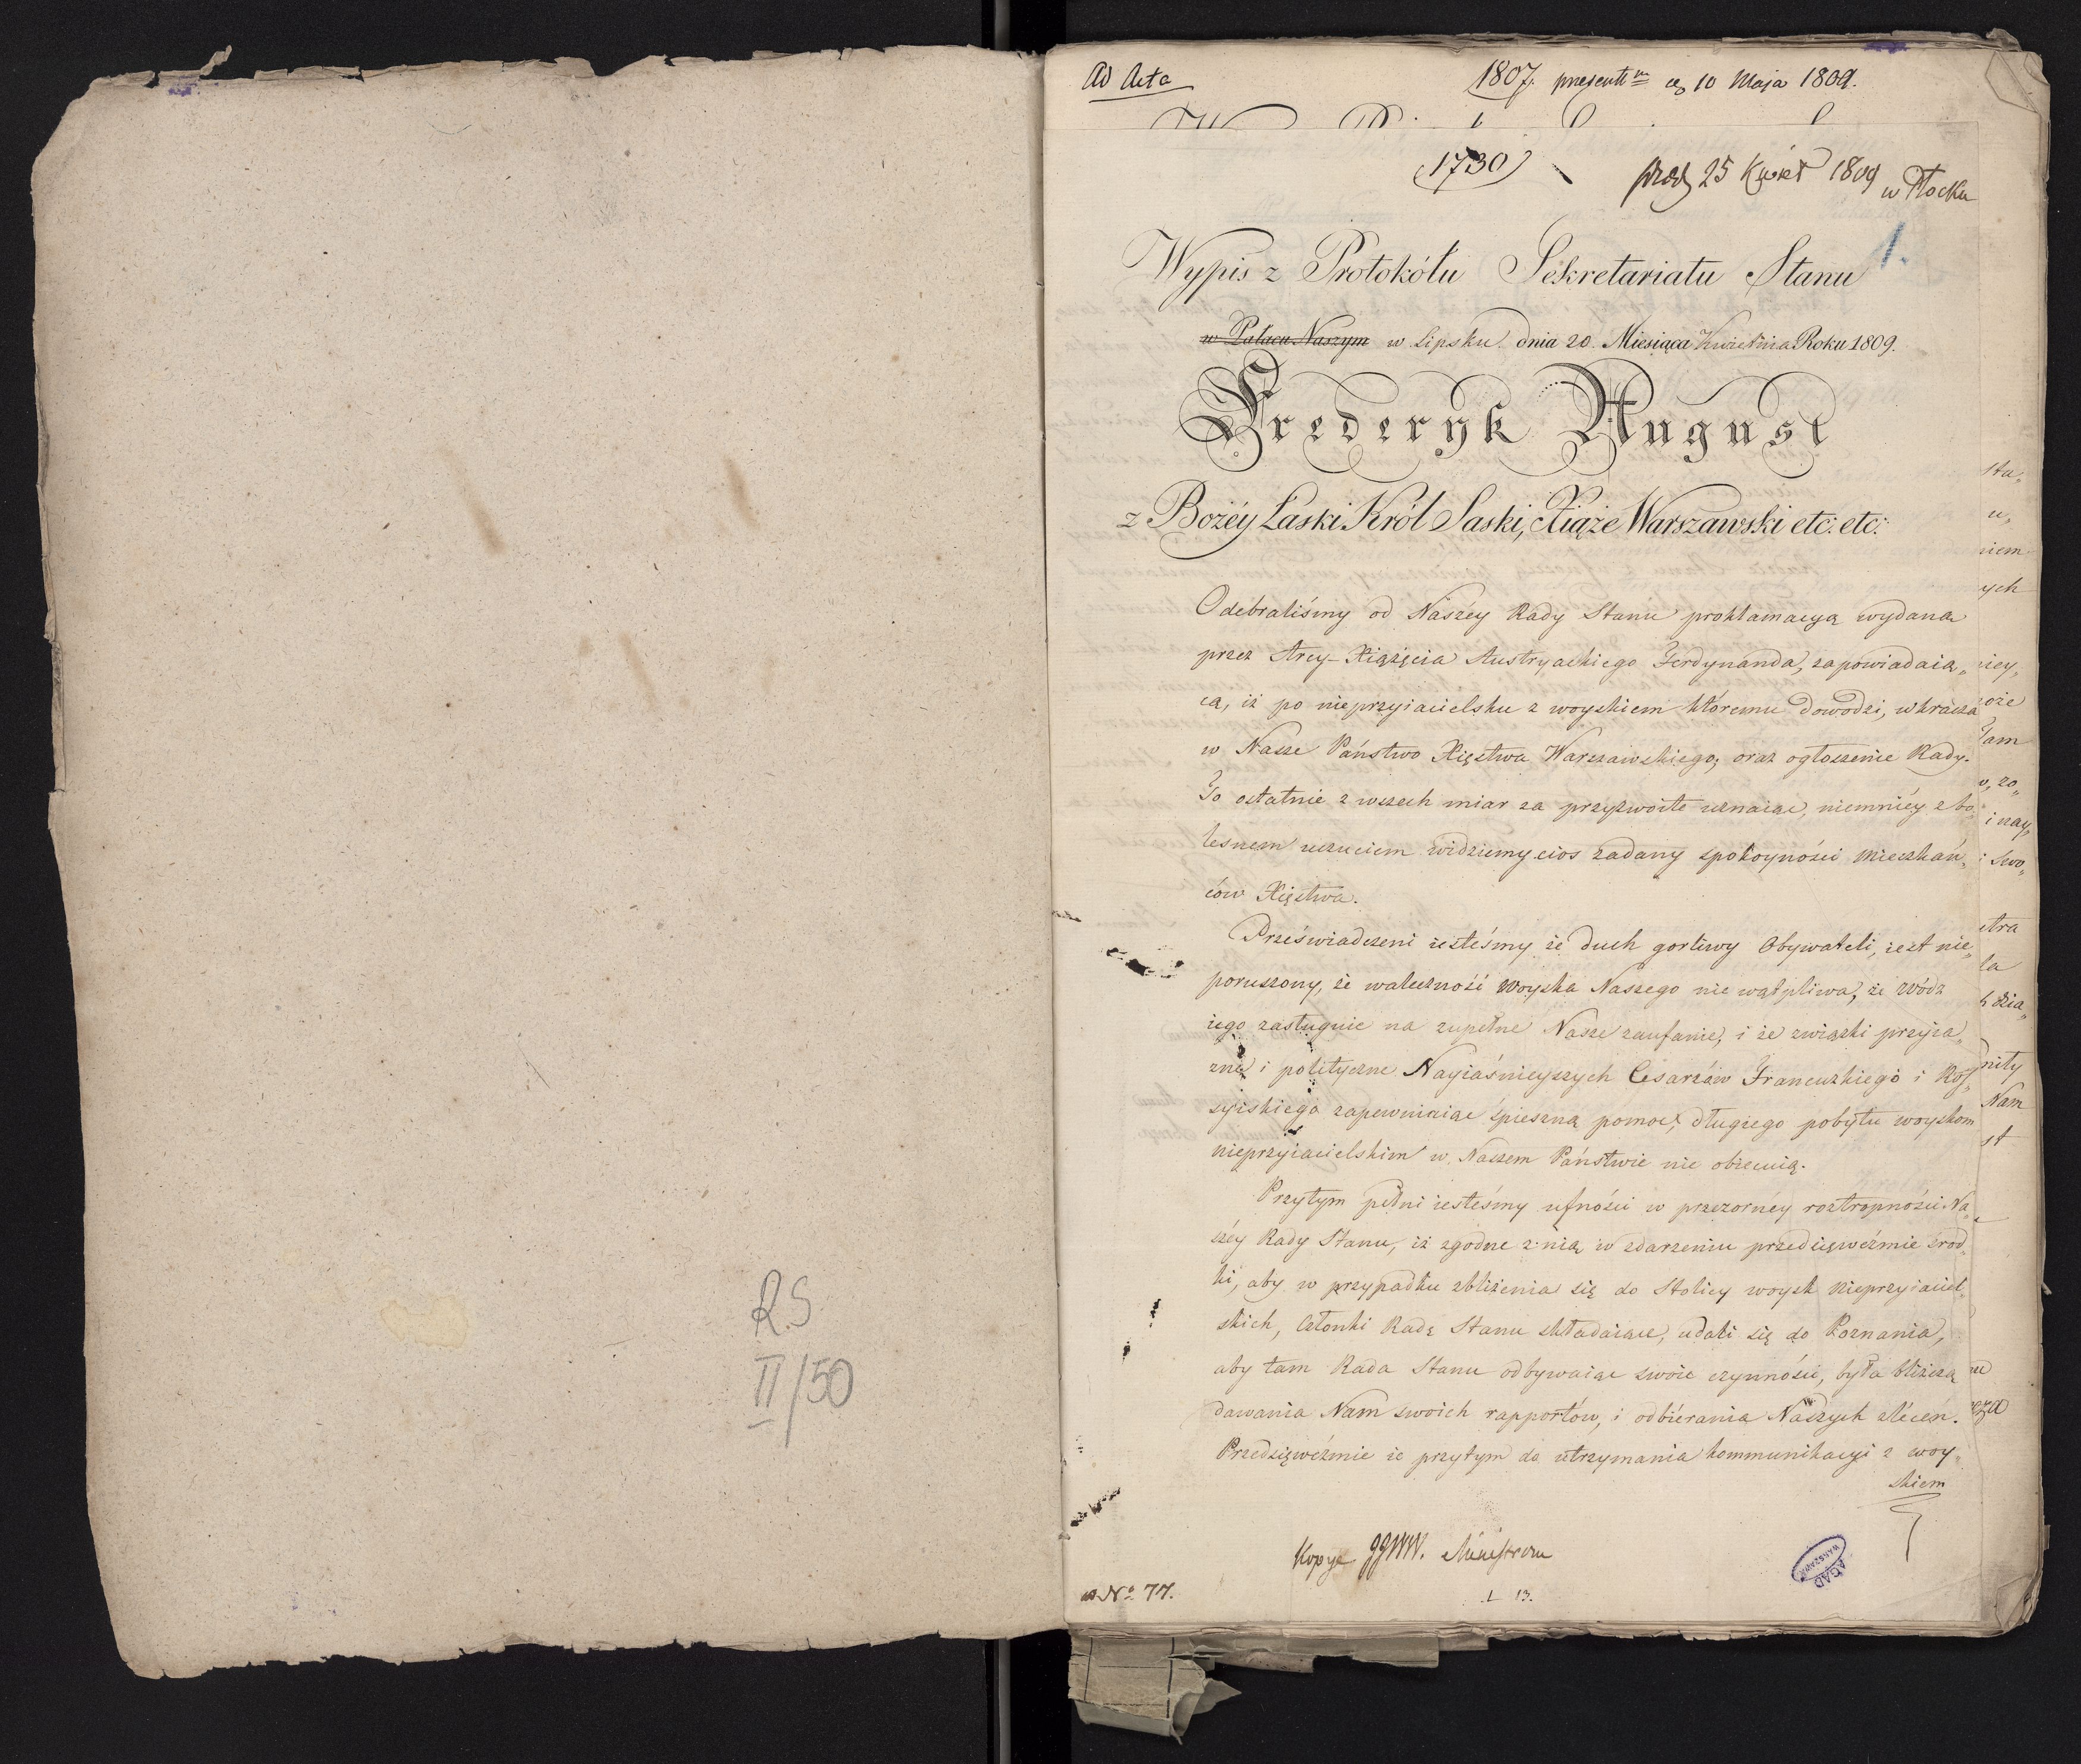 R.S
II/50
Ad Acta
1807. present m d. 10 Maja 1809.
1730
pres 25 Kwiet 1809 w Płocku
1.
Wypis z Protokółu Sekretariatu Stanu
w Pałacu Naszym w Lipsku. dnia 20. Miesiąca Kwietnia Roku 1809.
Frederyk August
z Bożéy Łaski Król Saski, Xiąże Warszawski etc: etc:
Odebraliśmy od Naszéy Rady Stanu proklamacyą wydaną
przez Arcy-Xiążęcia Austryackiego Ferdynanda, zapowiadaią„
cą, iż po nieprzyiacielsku z woyskiem któremu dowodzi, wkracza
w Nasze Państwo Xięstwa Warszawskiego; oraz ogłoszenie Rady.
To ostatnie z wszech miar za przyzwoite uznaiąc, niemniéy z bo„
lesnem uczuciem widziemy cios zadany spokoyności Mieszkań„
ców Xięstwa.
Przeświadczeni iesteśmy że duch gorliwy Obywateli, iest nie„
poruszony, że waleczność Woyska Naszego nie wątpliwa, że Wódz
iego zasługuie na zupełne Nasze zaufanie, i że związki przyia„
zne i polityczne Nayiaśnieyszych Cesarzów Francuzkiego i Ros„
syiskiego zapewniaiąc śpieszną pomoc, długiego pobytu woyskom
nieprzyiacielskim w Naszem Państwie nie obiecuią.
Przytym pełni iesteśmy ufności w przezorney roztropności Na„
széy Rady Stanu, iż zgodne z nią w zdarzeniu przedsięweźmie środ„
ki, aby w przypadku zbliżenia się do Stolicy woysk nieprzyiaciel„
skich, Członki Radę Stanu składaiące, udali się do Poznania,
aby tam Rada Stanu odbywaiąc swoie czynności, była bliższą
dawania Nam swoich rapportów, i odbiérania Naszych zleceń.
Przedsięweźmie że przytym do utrzymania kommunikacyi z woy„
skiem
Kopye JJWW. Ministrom
No 77.
L 13.
AGAD
WARSZAWA